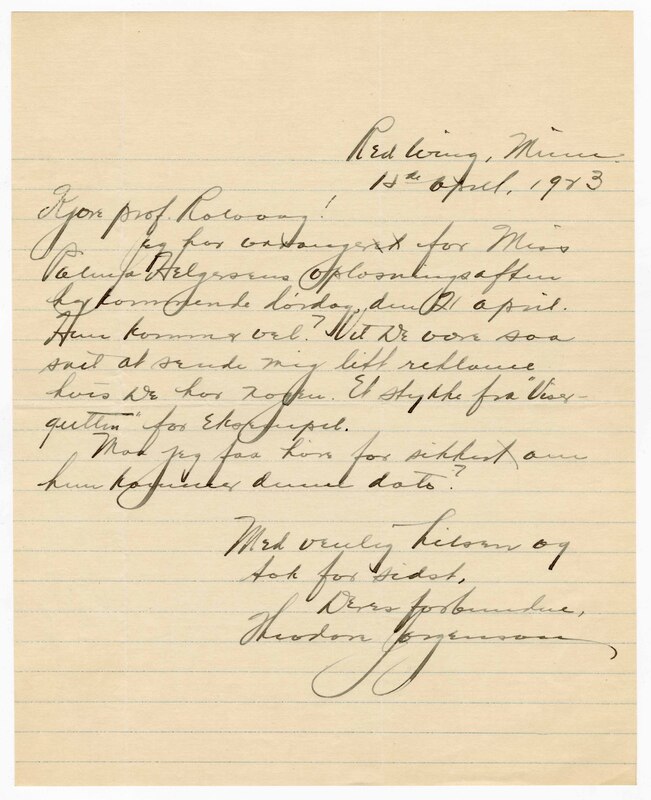 Red Wing, Minn.
12te april, 1923
Kjære prof. Rølvaag!
Jeg har arrangert for Miss
Palma Helgersens oplæsningsaften
her kommende lørdag, den 21 april.
Hun kommer vel? Vil De være saa
snil at sende mig litt reklame
hvis De har nogen. Et stykke fra "Viser-
gutten" for Eksempel.
Maa jeg faa høre for sikkert om
hun kommer denne dato?
Med venlig hilsen og
tak for sidst,
Deres forbundne,
Theodor Jorgenson